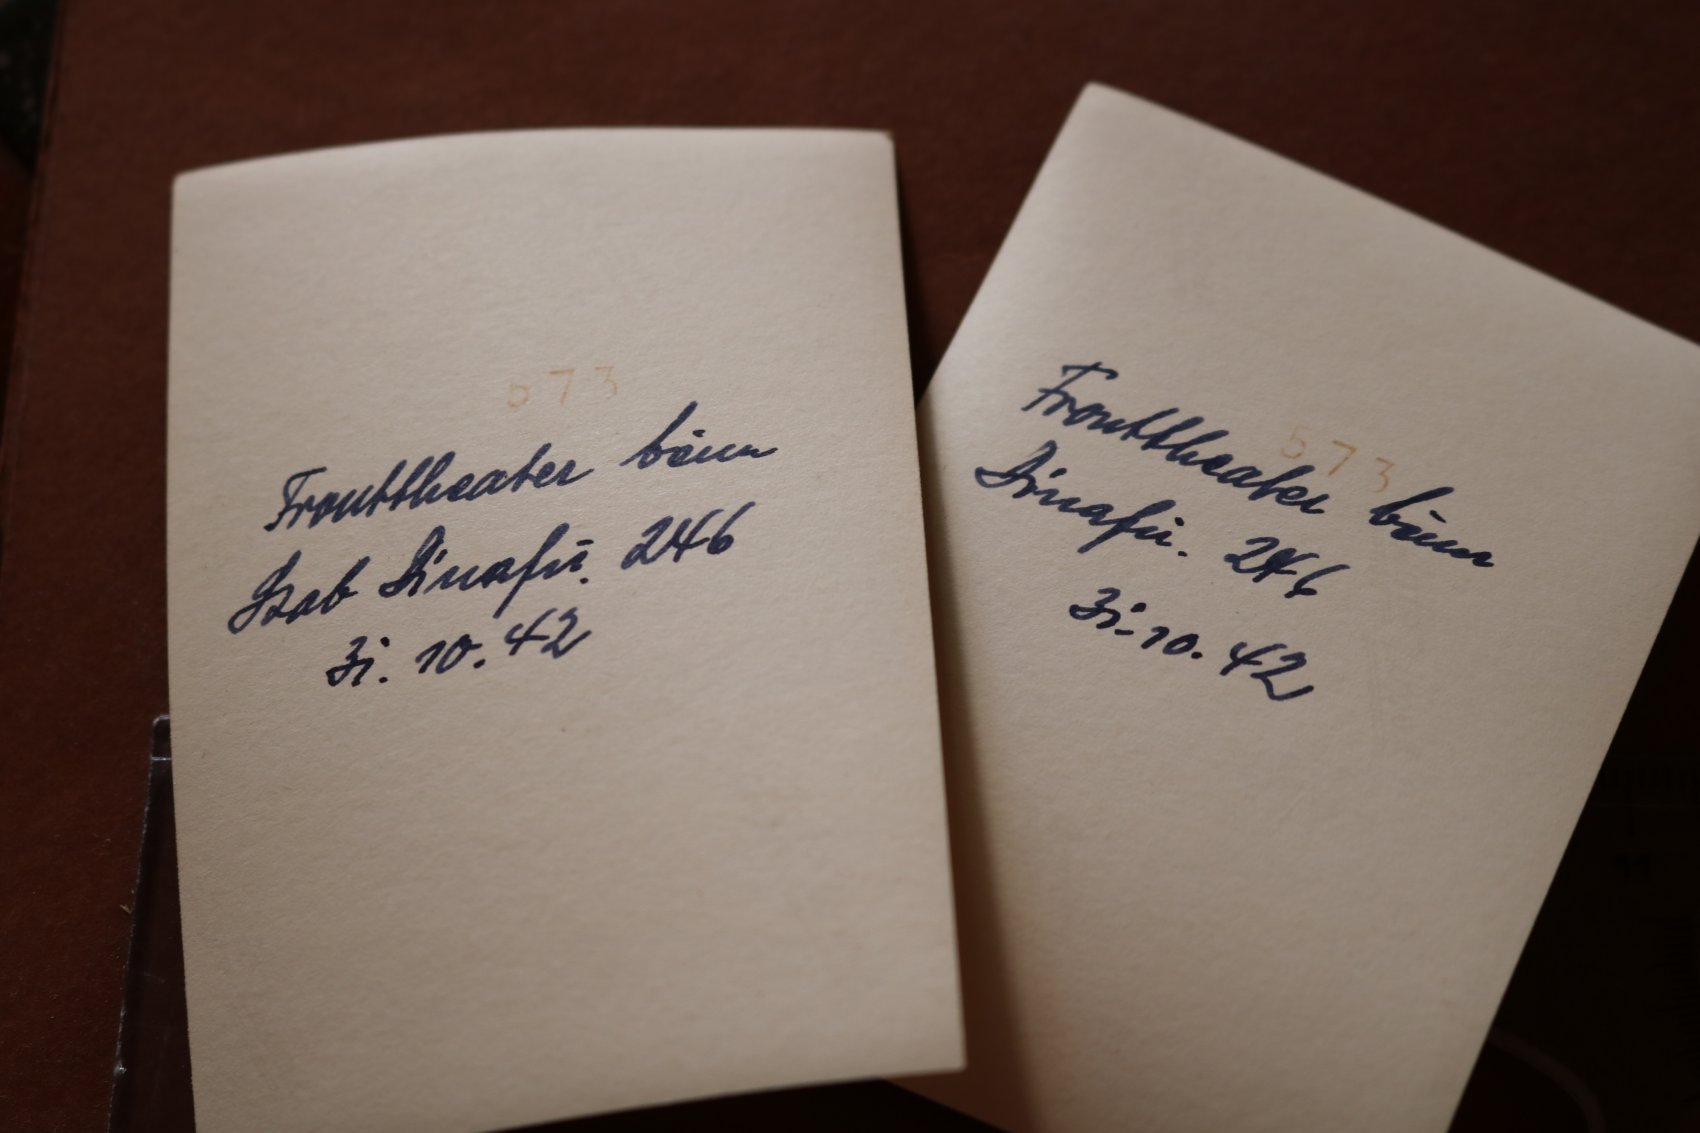 573
Fronttheater beim
Stab Dinafü. 246
31. 10. 42
573
Fronttheater beim
Dinafü. 246
31. 10. 42